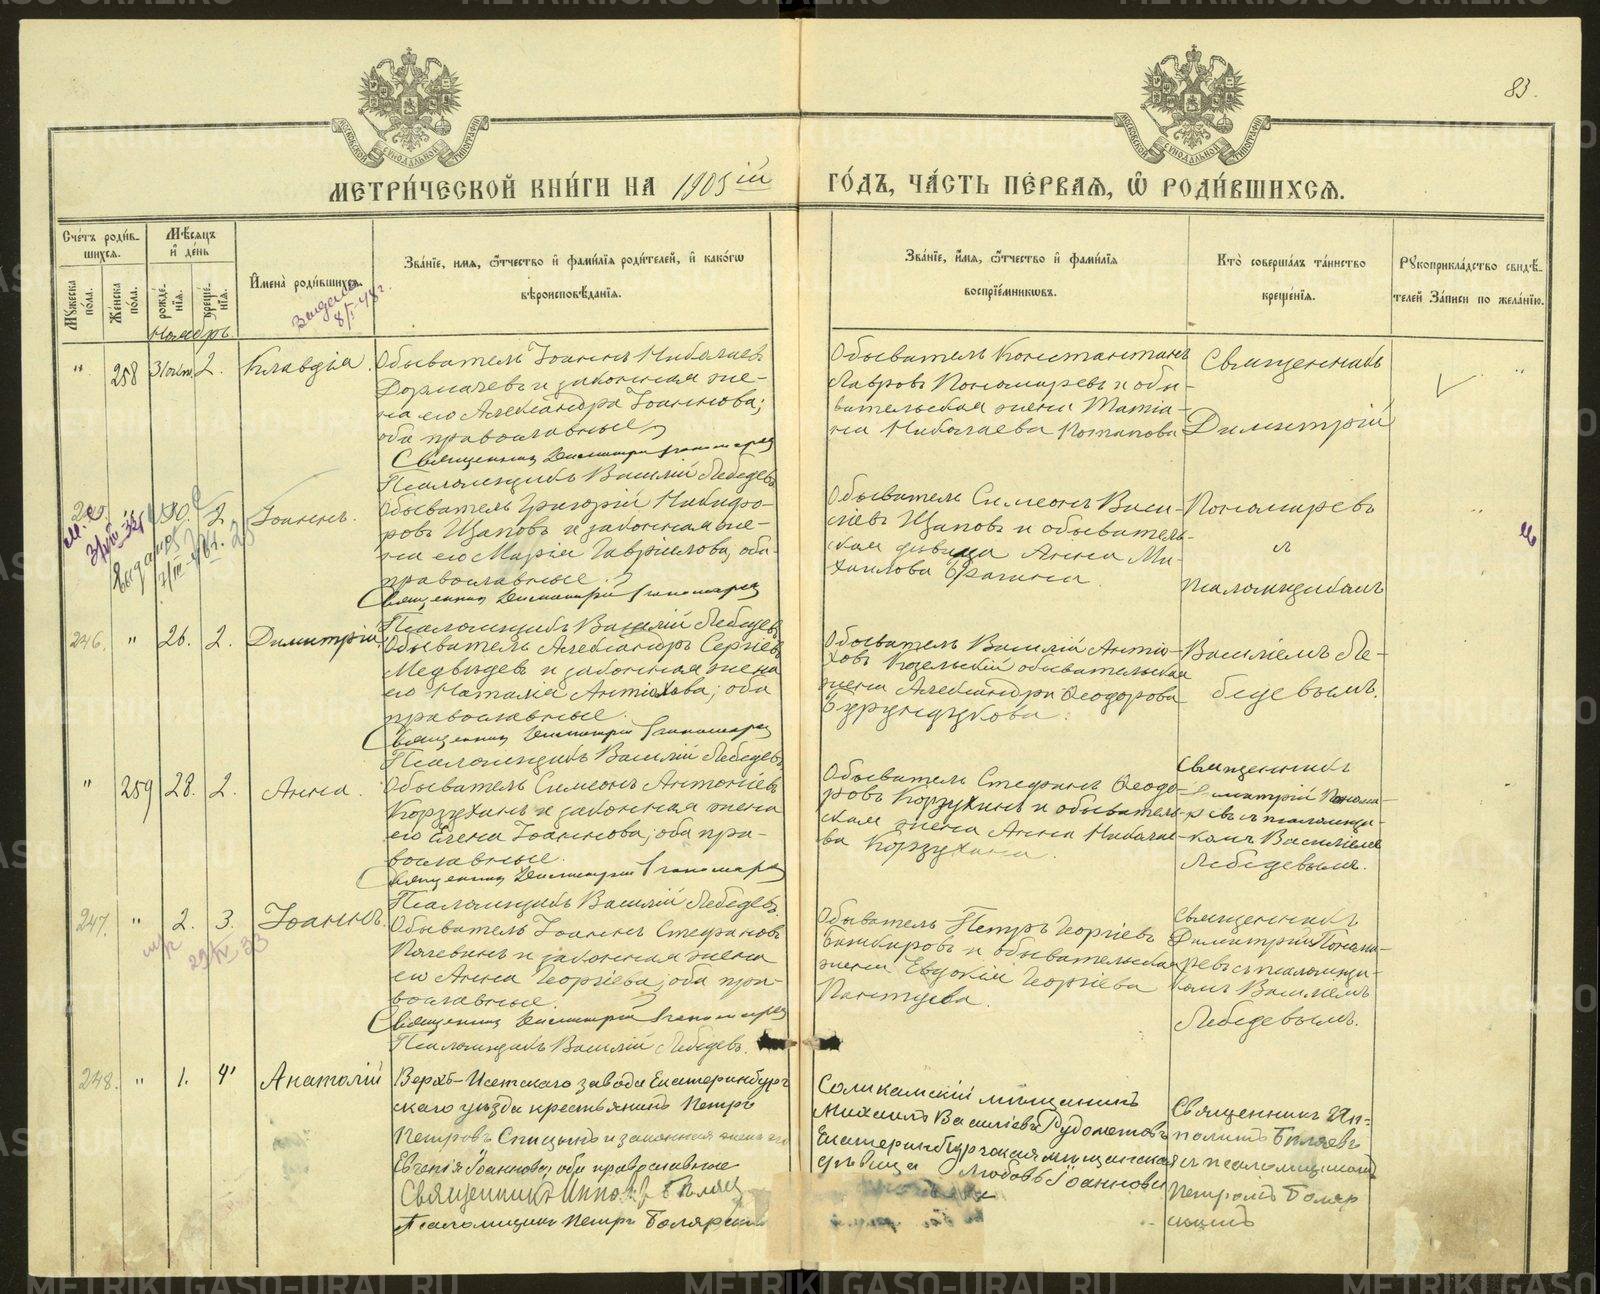 83.
МОСКОВСКОЙ СѴНОДАЛЬНОЙ ТИПОГРАФІИ
МОСКОВСКОЙ СѴНОДАЛЬНОЙ ТИПОГРАФІИ
МЕТРИ́ЧЕСКОЙ КНИ́ГИ НА 1905 ій ГО́ДЪ, ЧА́СТЬ ПЕ́РВАЯ, Ѡ҆ РОДИ́ВШИХСЯ.
Сче́тъ роди́в-
шихся.
Мѣ́сяцъ
и҆ де́нь
Мꙋ́жеска по́ла.
Же́нска по́ла.
рожде́нїя.
креще́нїя.
Ноябрь
И҆мена̀ роди́вшихся.
8/I-48 г.
Зва́нїе, имя, ѻ҆́тчество и҆ фами́лїя роди́телей, и҆ како́гѡ
вѣроисповѣ́данїя.
Зва́нїе, и҆́мя, ѻ҆́тчество и҆ фами́лїя
воспрїе́мникѡвъ.
Кто̀ соверша́лъ та́инство
креще́нїя.
Рꙋкоприкла́дство свидѣ́-
телей За́писи по жела́нїю.
" 258 31 окт. 2. Клавдія.
Обыватель Іоаннъ Николаевъ
Дормачевъ и законная же-
на его Александра Іоаннова;
оба православные
Священникъ Димитрій Пономаревъ
Псаломщикъ Василій Лебедевъ
Обыватель Константинъ
Лавровъ Пономаревъ и обы-
вательская жена Татіа-
на Николаева Потапова
Священникъ
Димитрій
30. 2. Іоаннъ.
Обыватель Григорій Никифо-
ровъ Щаповъ и законная же-
на его Марія Гавріилова, оба
православные.
Священникъ Димитрій Пономаревъ
Псаломщикъ Василій Лебедевъ
Обыватель Симеонъ Васи-
ліевъ Щаповъ и обыватель-
ская дѣвица Анна Ми-
хаилова
Пономаревъ
и
псаломщикомъ
246. " 26. 2. Димитрій
Обыватель Александръ Сергіевъ
Медвѣдевъ и законная жена
его Наталія Антіохова; оба
православные.
Священникъ Димитрій Пономаревъ
Псаломщикъ Василій Лебедевъ
Обыватель Василій Антіо-
ховъ Козельскій обывательская
жена Александра Ѳеодорова
Бурундукова.
Василіемъ Ле-
бедевымъ.
" 259 28. 2. Анна.
Обыватель Симеонъ Антоніевъ
Корзухинъ и законная жена
его Елена Іоаннова; оба пра-
вославные.
Священникъ Димитрій Пономаревъ
Псаломщикъ Василій Лебедевъ.
Обыватель Стефанъ Ѳеодо-
ровъ Корзухинъ и обыватель-
ская жена Анна Николае-
ва Корзухина.
Священникъ
Димитрій Понома-
ревъ съ псаломщи-
комъ Василіемъ
Лебедевымъ.
247. " 2. 3. Іоаннъ.
Обыватель Іоаннъ Стефановъ
и законная жена
его Анна Георгіева; оба пра-
вославные.
Священникъ Димитрій Пономаревъ
Псаломщикъ Василій Лебедевъ.
Обыватель Петръ Георгіевъ
Башкировъ и обывательская
жена Евдокія Георгіева
Пантуева.
Священникъ
Димитрій Понома-
ревъ съ псаломщи-
комъ Василіемъ
Лебедевымъ.
248. " 1. 4. Анатолій
Верхъ-Исетскаго завода Екатеринбург-
скаго уѣзда крестьянинъ Петръ
Петровъ Спицынъ и законная жена его
Евгенія Іоаннова, оба православные
Священникъ Иппол. Бѣляев
Псаломщикъ Петръ Болярскій
Соликамскій мѣщанинъ
Михаилъ Василіевъ Рудометовъ
Екатеринбургская мѣщанская
дѣвица Любовь Іоаннова
Священникъ Ип-
политъ Бѣляевъ
съ псаломщикомъ
Петромъ Боляр
скимъ
METRIKI.GASO-URAL.RU